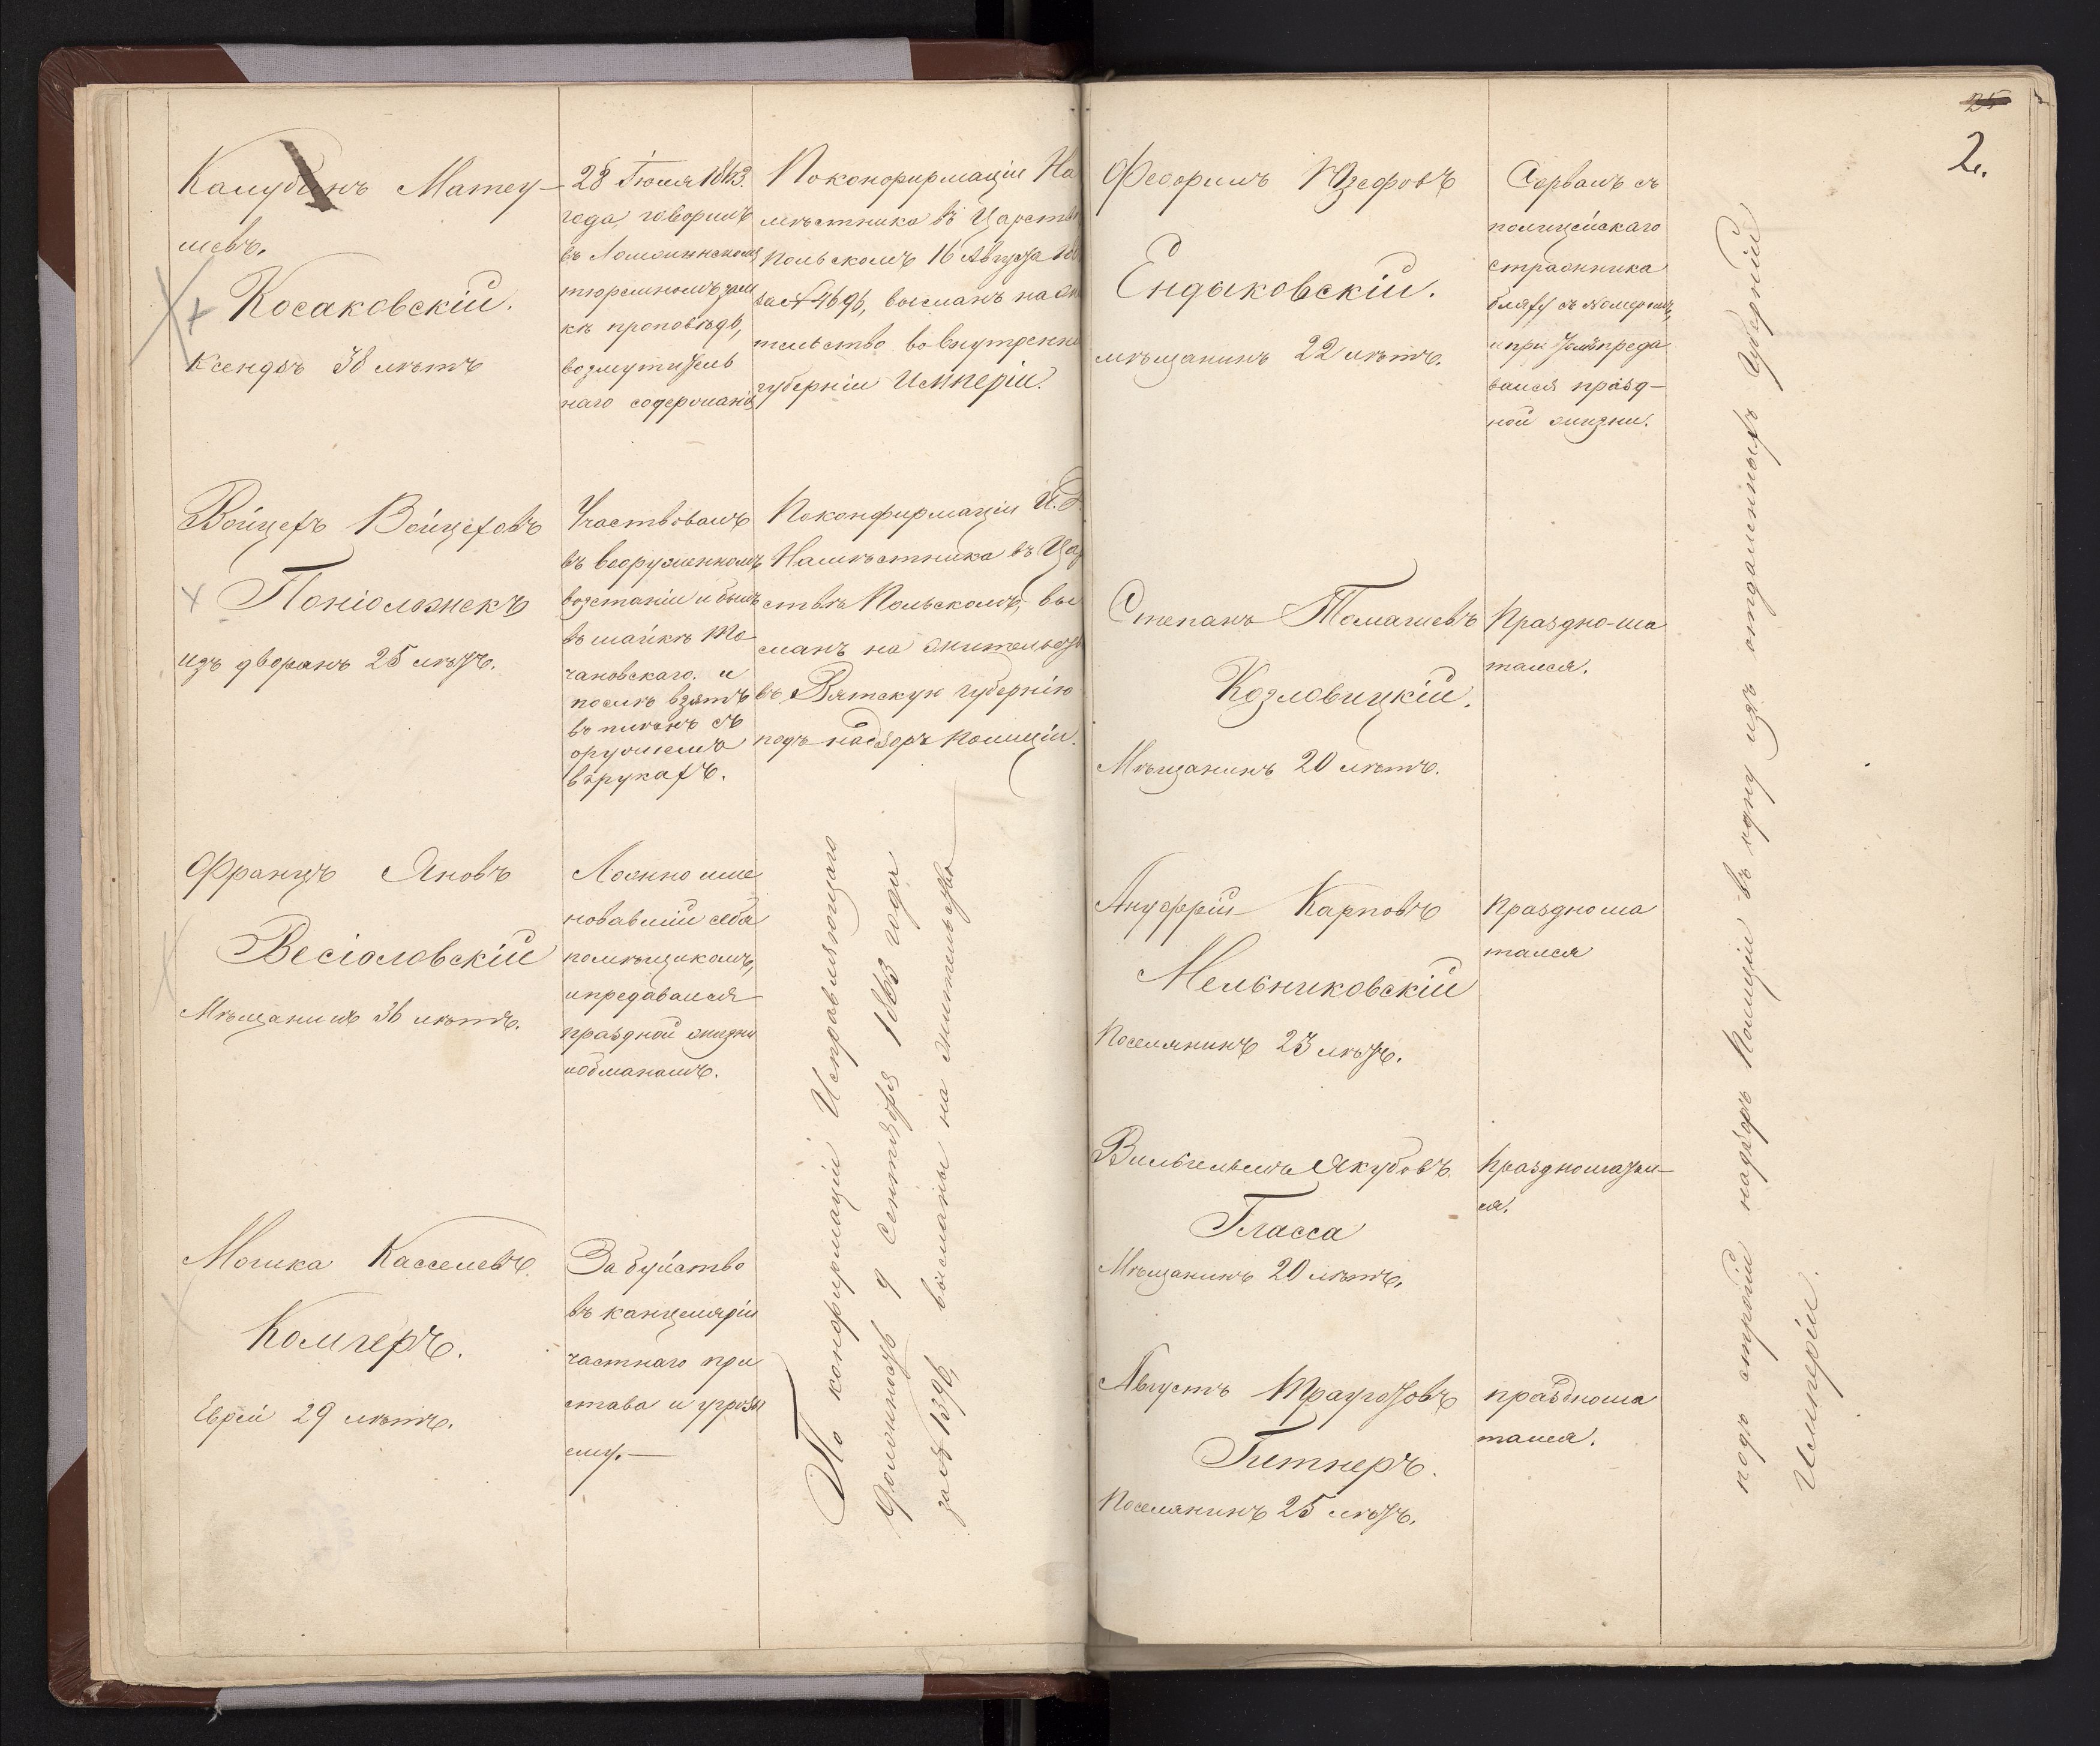 Матеу-
шевъ.
Косаковскій.
Ксендзъ 38 лѣтъ
28 Іюля 1863.
года, говорилъ
въ Ломжинскомъ
тюремномъ зам
кѣ проповѣдь,
возмутитель
наго содержанія
По конфирмаціи На
мѣстника въ Царств
Польскомъ 16 Августа
за № 4696, высланъ на
тельство во внутренн
губерніи Имперіи.
Войцехъ Войцеховъ
Поніоложнекъ
изъ дворянъ 25 лѣтъ.
Участвовалъ
въ вооруженномъ
возстаніи и былъ
въ шайкѣ
чановскаго. и
послѣ взятъ
въ плѣнъ съ
оружіемъ
въ рукахъ.
По конфирмаціи И.Д.
Намѣстника въ Цар
ствѣ Польскомъ, выс
ланъ на жительство
въ Вятскую губернію
подъ надзоръ Полиціи.
Францъ Яновъ
Весіоловскій
Мѣщанинъ 36 лѣтъ.
Ложно име
новавшій себя
помѣщикомъ,
и предавался
праздной жизни
и обманамъ.
Мошка Касселевъ.
Комгеръ.
Еврей 29 лѣтъ.
За буйство
въ канцеляріи
частнаго при
става и угрозы
ему.—
По конфирмаціи Исправляющаго
Должность 9 Сентября 1863 года
за № 1396, высланы на жительство
25
2.
Юзефовъ
Ендыковскій.
мѣщанинъ 22 лѣтъ.
Сорвалъ съ
полицейскаго
стражника
бляху съ номеромъ,
и при томъ преда
вался празд-
ной жизни.
Степанъ Томашевъ
Козловицкій.
Мѣщанинъ 20 лѣтъ.
Праздно-ша
тался.
Ануфрій Карповъ
Мельниковскій
Поселянинъ 23 лѣтъ.
Праздноша
тался
Вильгельмъ Якубовъ.
Гласса
Мѣщанинъ 20 лѣтъ.
Праздношатал-
ся.
Августъ Трауготтовъ
Гитнеръ.
Поселянинъ 25 лѣтъ.
праздноша
тался.
подъ строгій надзоръ Полиціи въ одну изъ отдаленныхъ Губерній
Имперіи.